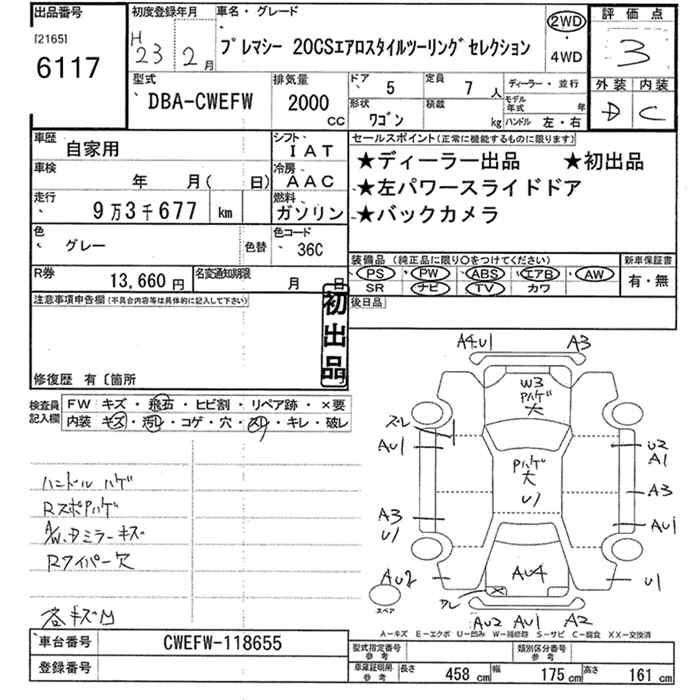 出品番号
[2165]
6117
初度登録年月
H 23 2月
車名・グレード
プレマシー 20CSエアロスタイルツーリングセレクション
2WD
・
4WD
評価点
3
外装 内装
D C
型式
DBA-CWEFW
排気量
2000 CC
ドア 5
定員 7 人
ディーラー・並行
形状 ワゴン
積載 kg
モデル年式 年
ハンドル 左・右
車歴
自家用
シフト
IAT
車検
年 月( 日)
冷房
AAC
走行
9万3千677 km
燃料
ガソリン
色
グレー
色替
色コード
36C
R券
13,660円
名変通知期限
月 日
セールスポイント(正常に機能するものに限ります)
★ディーラー出品 ★初出品
★左パワースライドドア
★バックカメラ
装備品 (純正品に限り○をつけてください)
PS PW ABS エアB AW
SR ナビ TV カワ
新車保証書
有・無
後日品
注意事項申告欄(不具合内容等は具体的に記入して下さい)
初出品
修復歴 有〔箇所
検査員記入欄
FW キズ・飛石・ヒビ割・リペア跡・×要
内装 キズ・汚レ・コゲ・穴・スリ・キレ・破レ
ハンドル ハゲ
RスポPハゲ
A/W.Dミラーキズ
Rワイパー欠
各キズ凹
A4.U1
A3
W3
Pハゲ
大
スレ
AU1
U2
A1
Pハゲ
大
U1
A3
A3
U1
AU1
AU2
AU4
U1
スペア
スレ
AU2 AU1 A2
A-キズ E-エクボ U-凹み W-補修跡 S-サビ C-腐食 XX-交換済
車台番号
CWEFW-118655
登録番号
型式指定番号
参考
類別区分番号
参考
車庫証明用
参考
長さ 458 cm
幅 175 cm
高さ 161 cm